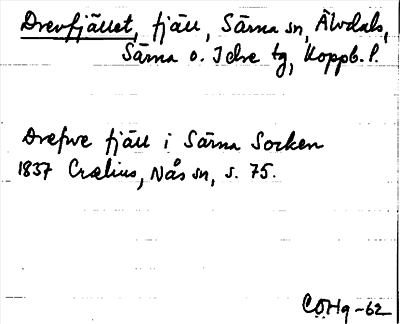 Drevfjället, fjäll, Särna sn, Älvdals,
Särna o. Idre tg, Koppb. l.
Drefwe fjäll i Särna Socken
1837 Crælius, Nås sn, s. 75.
COHq-62